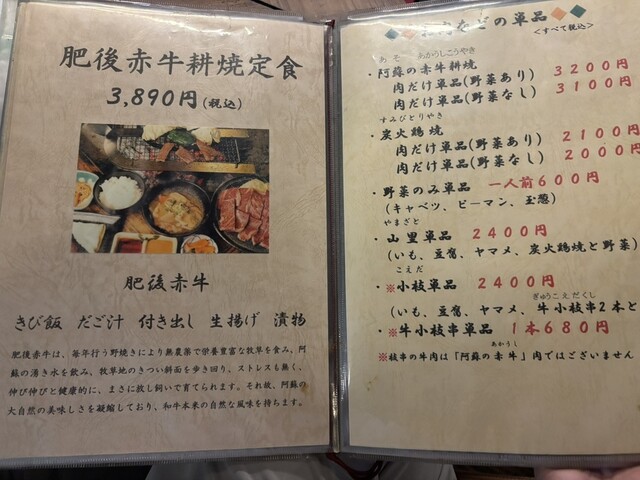 肥後赤牛耕焼定食
3,890円(税込)
肥後赤牛
きび飯 だご汁 付き出し 生揚げ 漬物
肥後赤牛は、毎年行う野焼きにより無農薬で栄養豊富な牧草を食み、阿
蘇の湧き水を飲み、牧草地のきつい斜面を歩き回り、ストレスも無く、
伸び伸びと健康的に、まさに放し飼いで育てられます。それ故、阿蘇の
大自然の美味しさを凝縮しており、和牛本来の自然な風味を持ちます。
などの単品
<すべて税込>
あそ あかうしこうやき
・阿蘇の赤牛耕焼
肉だけ単品(野菜あり) 3200円
肉だけ単品(野菜なし) 3100円
すみびとりやき
・炭火鶏焼
肉だけ単品(野菜あり) 2100円
肉だけ単品(野菜なし) 2000円
・野菜のみ単品 一人前600円
(キャベツ、ピーマン、玉葱)
やまざと
・山里単品 2400円
(いも、豆腐、ヤマメ、炭火鶏焼と野菜)
こえだ
・※小枝単品 2400円
ぎゅうこえだくし
(いも、豆腐、ヤマメ、牛小枝串2本と
・※牛小枝串単品 1本680円
あかうし
※枝串の牛肉は「阿蘇の赤牛」肉ではございません